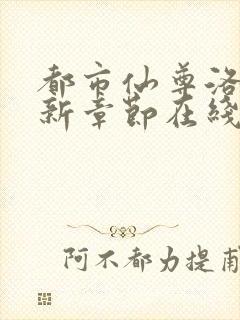 都市仙尊洛
新章節在綫
阿不都力提甫